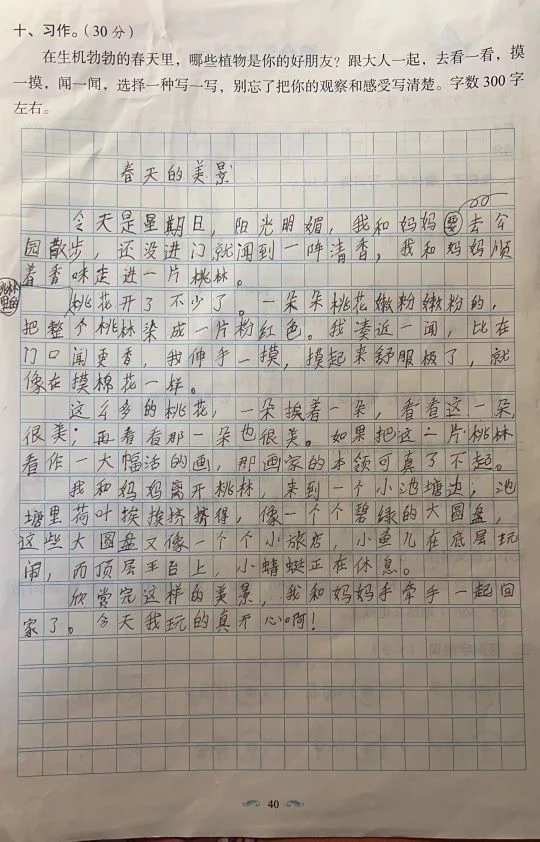 十、习作。（30 分）
在生机勃勃的春天里，哪些植物是你的好朋友？跟大人一起，去看一看，摸
一摸，闻一闻，选择一种写一写，别忘了把你的观察和感受写清楚。字数 300 字
左右。
春天的美景
今天是星期日，阳光明媚，我和妈妈要去公
园散步，还没进门就闻到一阵清香，我和妈妈顺
着香味走进一片桃林。
桃林里的
桃花开了不少了。一朵朵桃花嫩粉嫩粉的，
把整个桃林染成一片粉红色。我凑近一闻，比在
门口闻更香，我伸手一摸，摸起来舒服极了，就
像在摸棉花一样。
这么多的桃花，一朵挨着一朵，看看这一朵，
很美；再看看那一朵也很美。如果把这一片桃林
看作一大幅活的画，那画家的本领可真了不起。
我和妈妈离开桃林，来到一个小池塘边，池
塘里荷叶挨挨挤挤得，像一个个碧绿的大圆盘，
这些大圆盘又像一个个小旅店，小鱼儿在底层玩
闹，而顶层平台上，小蜻蜓正在休息。
欣赏完这样的美景，我和妈妈手牵手一起回
家了。今天我玩的真开心啊！
40